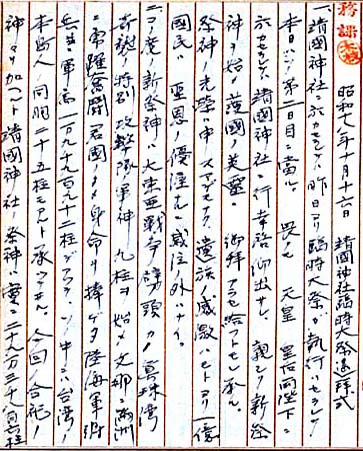 昭和十七年十月十六日 靖國神社臨時大祭遙拝式
一、靖國神社ニ於カセラレテハ昨日ヨリ臨時大祭ガ執行ハセラレテ
本日ハソノ第二日目ニ當ル。畏クモ 天皇 皇后両陛下ニ
於カセラレテハ靖國神社ニ行幸啓仰出サレ 親シク新祭
神ヲ始メ護國ノ英霊ニ 御拜アラセ給フヤニ承ル。
祭神ノ光榮ハ申スマデモナク遺族ノ感激ハモトヨリ一億
國民ハ 聖恩ノ優渥ナルニ感泣ノ外ハナイ
コノ度ノ新祭神ハ大東亜戰爭ノ劈頭カノ真珠湾
奇襲ノ特別攻撃隊軍神九柱ヲ始メ支那ニ滿洲
ニ勇躍奮闘君國ノタメ身命ヲ捧ゲタ陸海軍将
兵並軍属一万九千九百九十二柱デアツテソノ中ニハ台湾ノ
本島人ノ同胞二十五柱モアルト承ツテヰル。今回ノ合祀ノ
神々ヲ加ヘルト靖國神社ノ祭神ハ實ニ二十九万三千